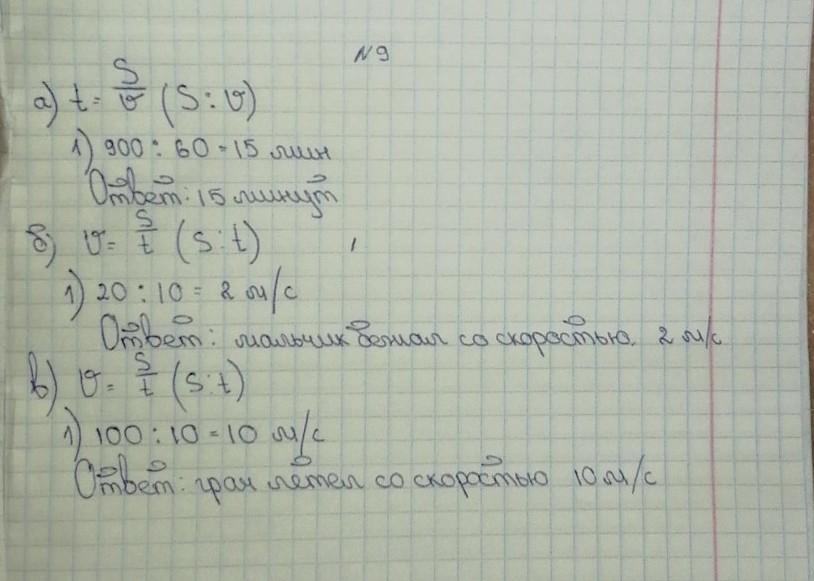 №9
а) t = S/v (S : v)
1) 900 : 60 = 15 мин
Ответ: 15 минут
б) v = S/t (s : t)
1) 20 : 10 = 2 м/с
Ответ: мальчик бежал со скоростью. 2 м/с
в) v = S/t (s : t)
1) 100 : 10 = 10 м/с
Ответ: грач летел со скоростью 10 м/с